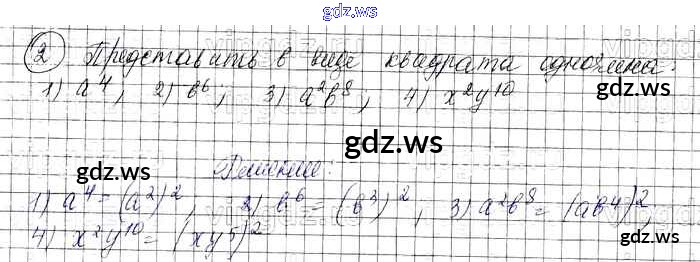 gdz.ws
2 Представить в виде квадрата одночлена:
1) a⁴, 2) b⁶; 3) a²b⁸; 4) x²y¹⁰
gdz.ws
gdz.ws
gdz.ws
Решение:
1) a⁴ = (a²)², 2) b⁶ = (b³)²; 3) a²b⁸ = (ab⁴)²,
4) x²y¹⁰ = (xy⁵)²
gdz.ws
gdz.ws